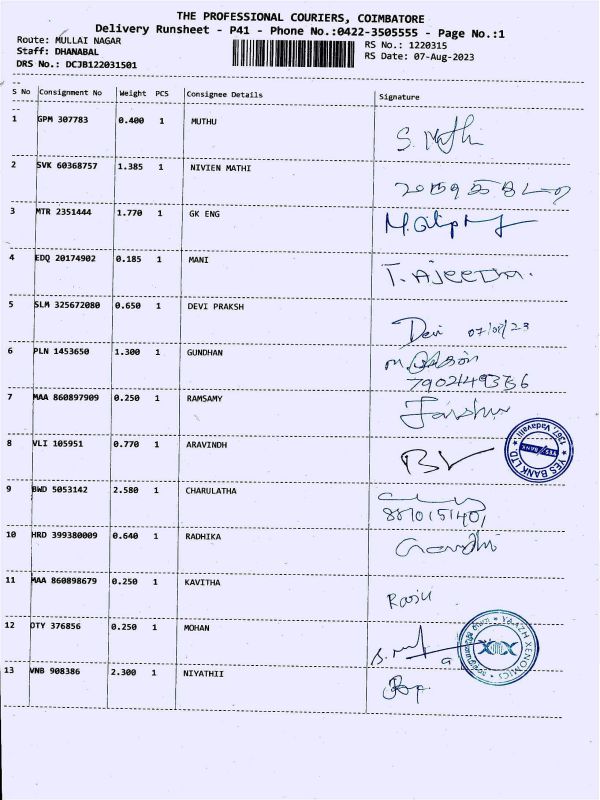 THE PROFESSIONAL COURIERS, COIMBATORE
Delivery Runsheet - P41 - Phone No.:0422-3505555 - Page No.:1
Route: MULLAI NAGAR
RS No.: 1220315
Staff: DHANABAL
RS Date: 07-Aug-2023
DRS No.: DCJB122031501
S No Consignment No Weight PCS Consignee Details Signature
1 GPM 307783 0.400 1 MUTHU
2 SVK 60368757 1.385 1 NIVIEN MATHI
3 MTR 2351444 1.770 1 GK ENG
4 EDQ 20174902 0.185 1 MANI T. AJeetha.
5 SLM 325672080 0.650 1 DEVI PRAKSH Devi 07/08/23
6 PLN 1453650 1.300 1 GUNDHAN
7 MAA 860897909 0.250 1 RAMSAMY
8 VLI 105951 0.770 1 ARAVINDH
YES BANK LTD. ★ 1367 Vadavalli ★
YES BANK
9 BWD 5053142 2.580 1 CHARULATHA
8870151401
10 HRD 399380009 0.640 1 RADHIKA
11 MAA 860898679 0.250 1 KAVITHA
12 OTY 376856 0.250 1 MOHAN
13 VNB 908386 2.300 1 NIYATHII